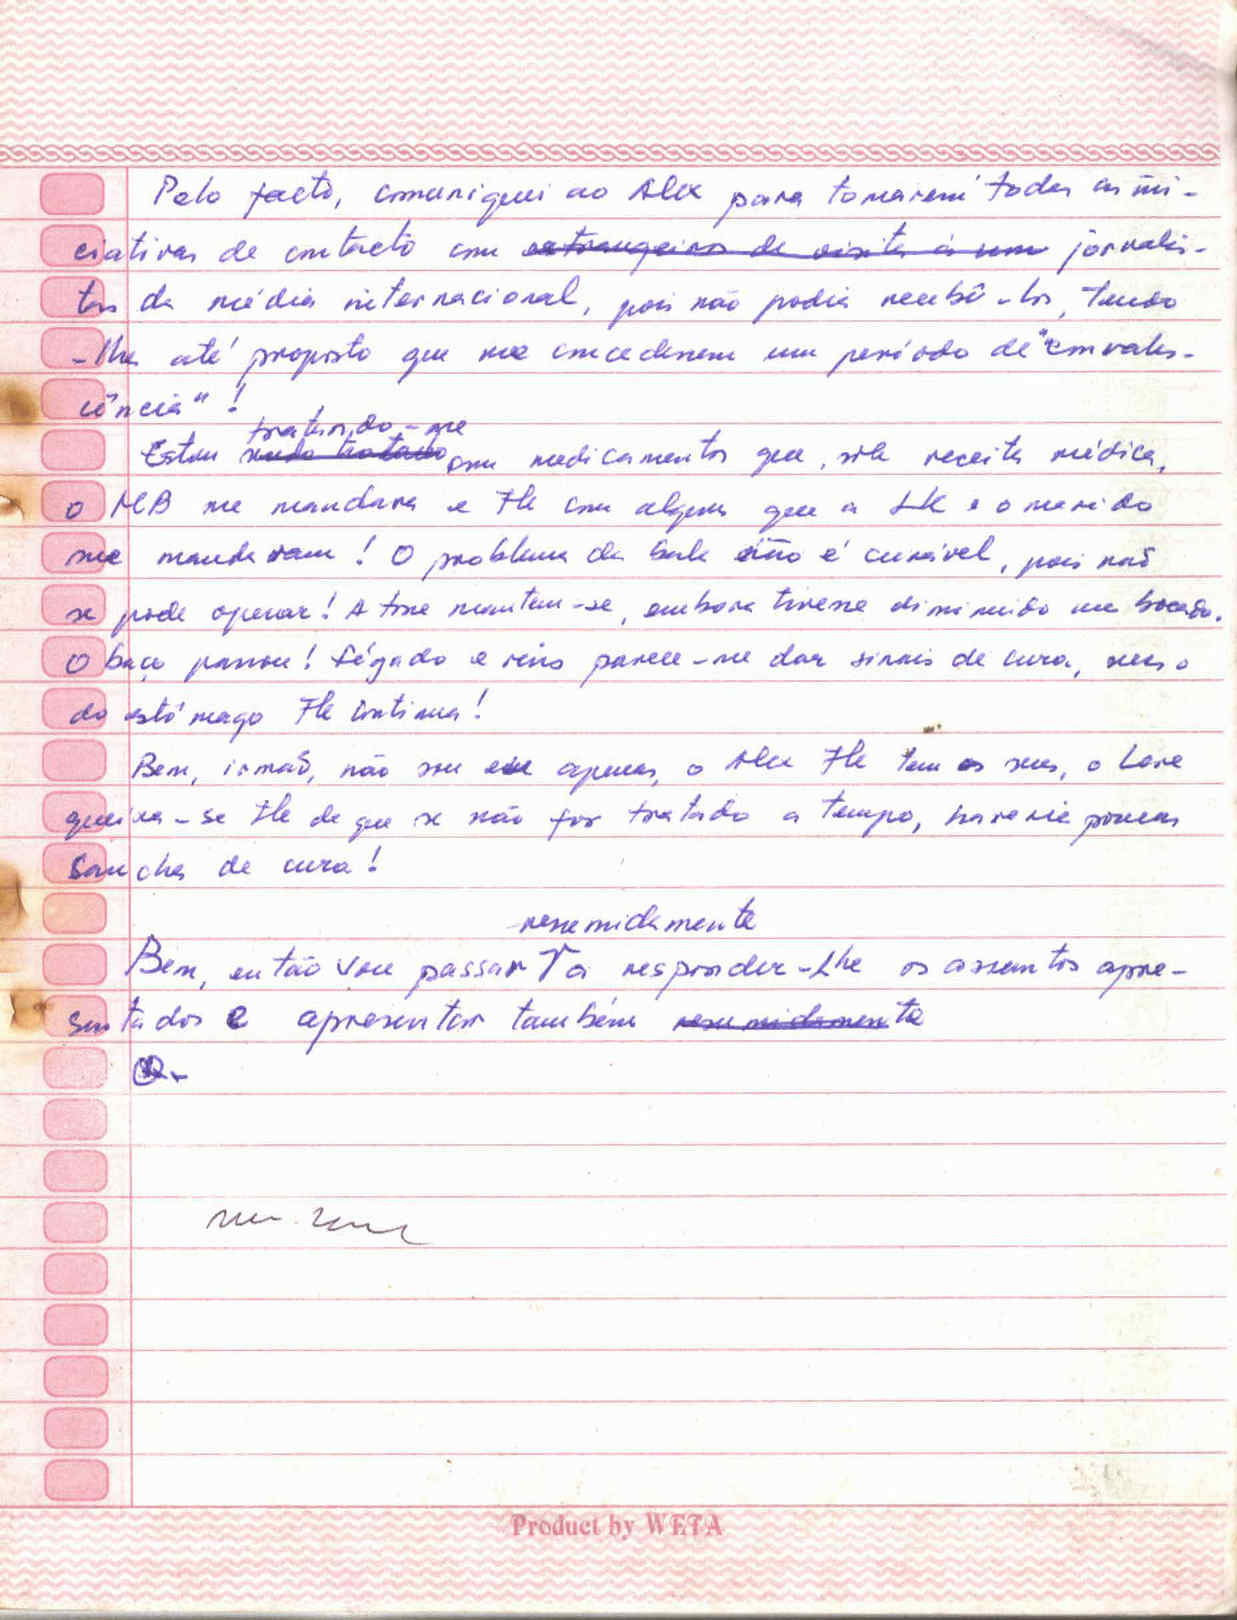 Pelo facto, comuniquei ao Alex para tomarem todas as ini-
ciativas de contacto com extrangeiros de visita á um jornalis-
tas da média internacional, pois não podia recebê-los, tendo
-lhes até proposto que me concedessem um período de "convales-
cência"!
tratando-me
Estou sendo tratado com medicamentos que, sob receita médica,
o MB me mandara e Tb com alguns que a LK e o marido
me mandaram! O problema da bala não é curável, pois não
se pode operar! A tosse mantem-se, embora tivesse diminuido um bocado.
O baço passou! Fégado e rins parece-me dar sinais de cura, mas o
do estômago Tb continua!
Bem, irmão, não sou eu apenas, o Alex Tb tem os seus, o Lere
queixa-se Tb de que se não for tratado a tempo, haverie poucas
sanches de cura!
resumidamente
Bem, então vou passar a responder-Lhe os assuntos apre-
sentados e apresentar também resumidamente
Product by WETA